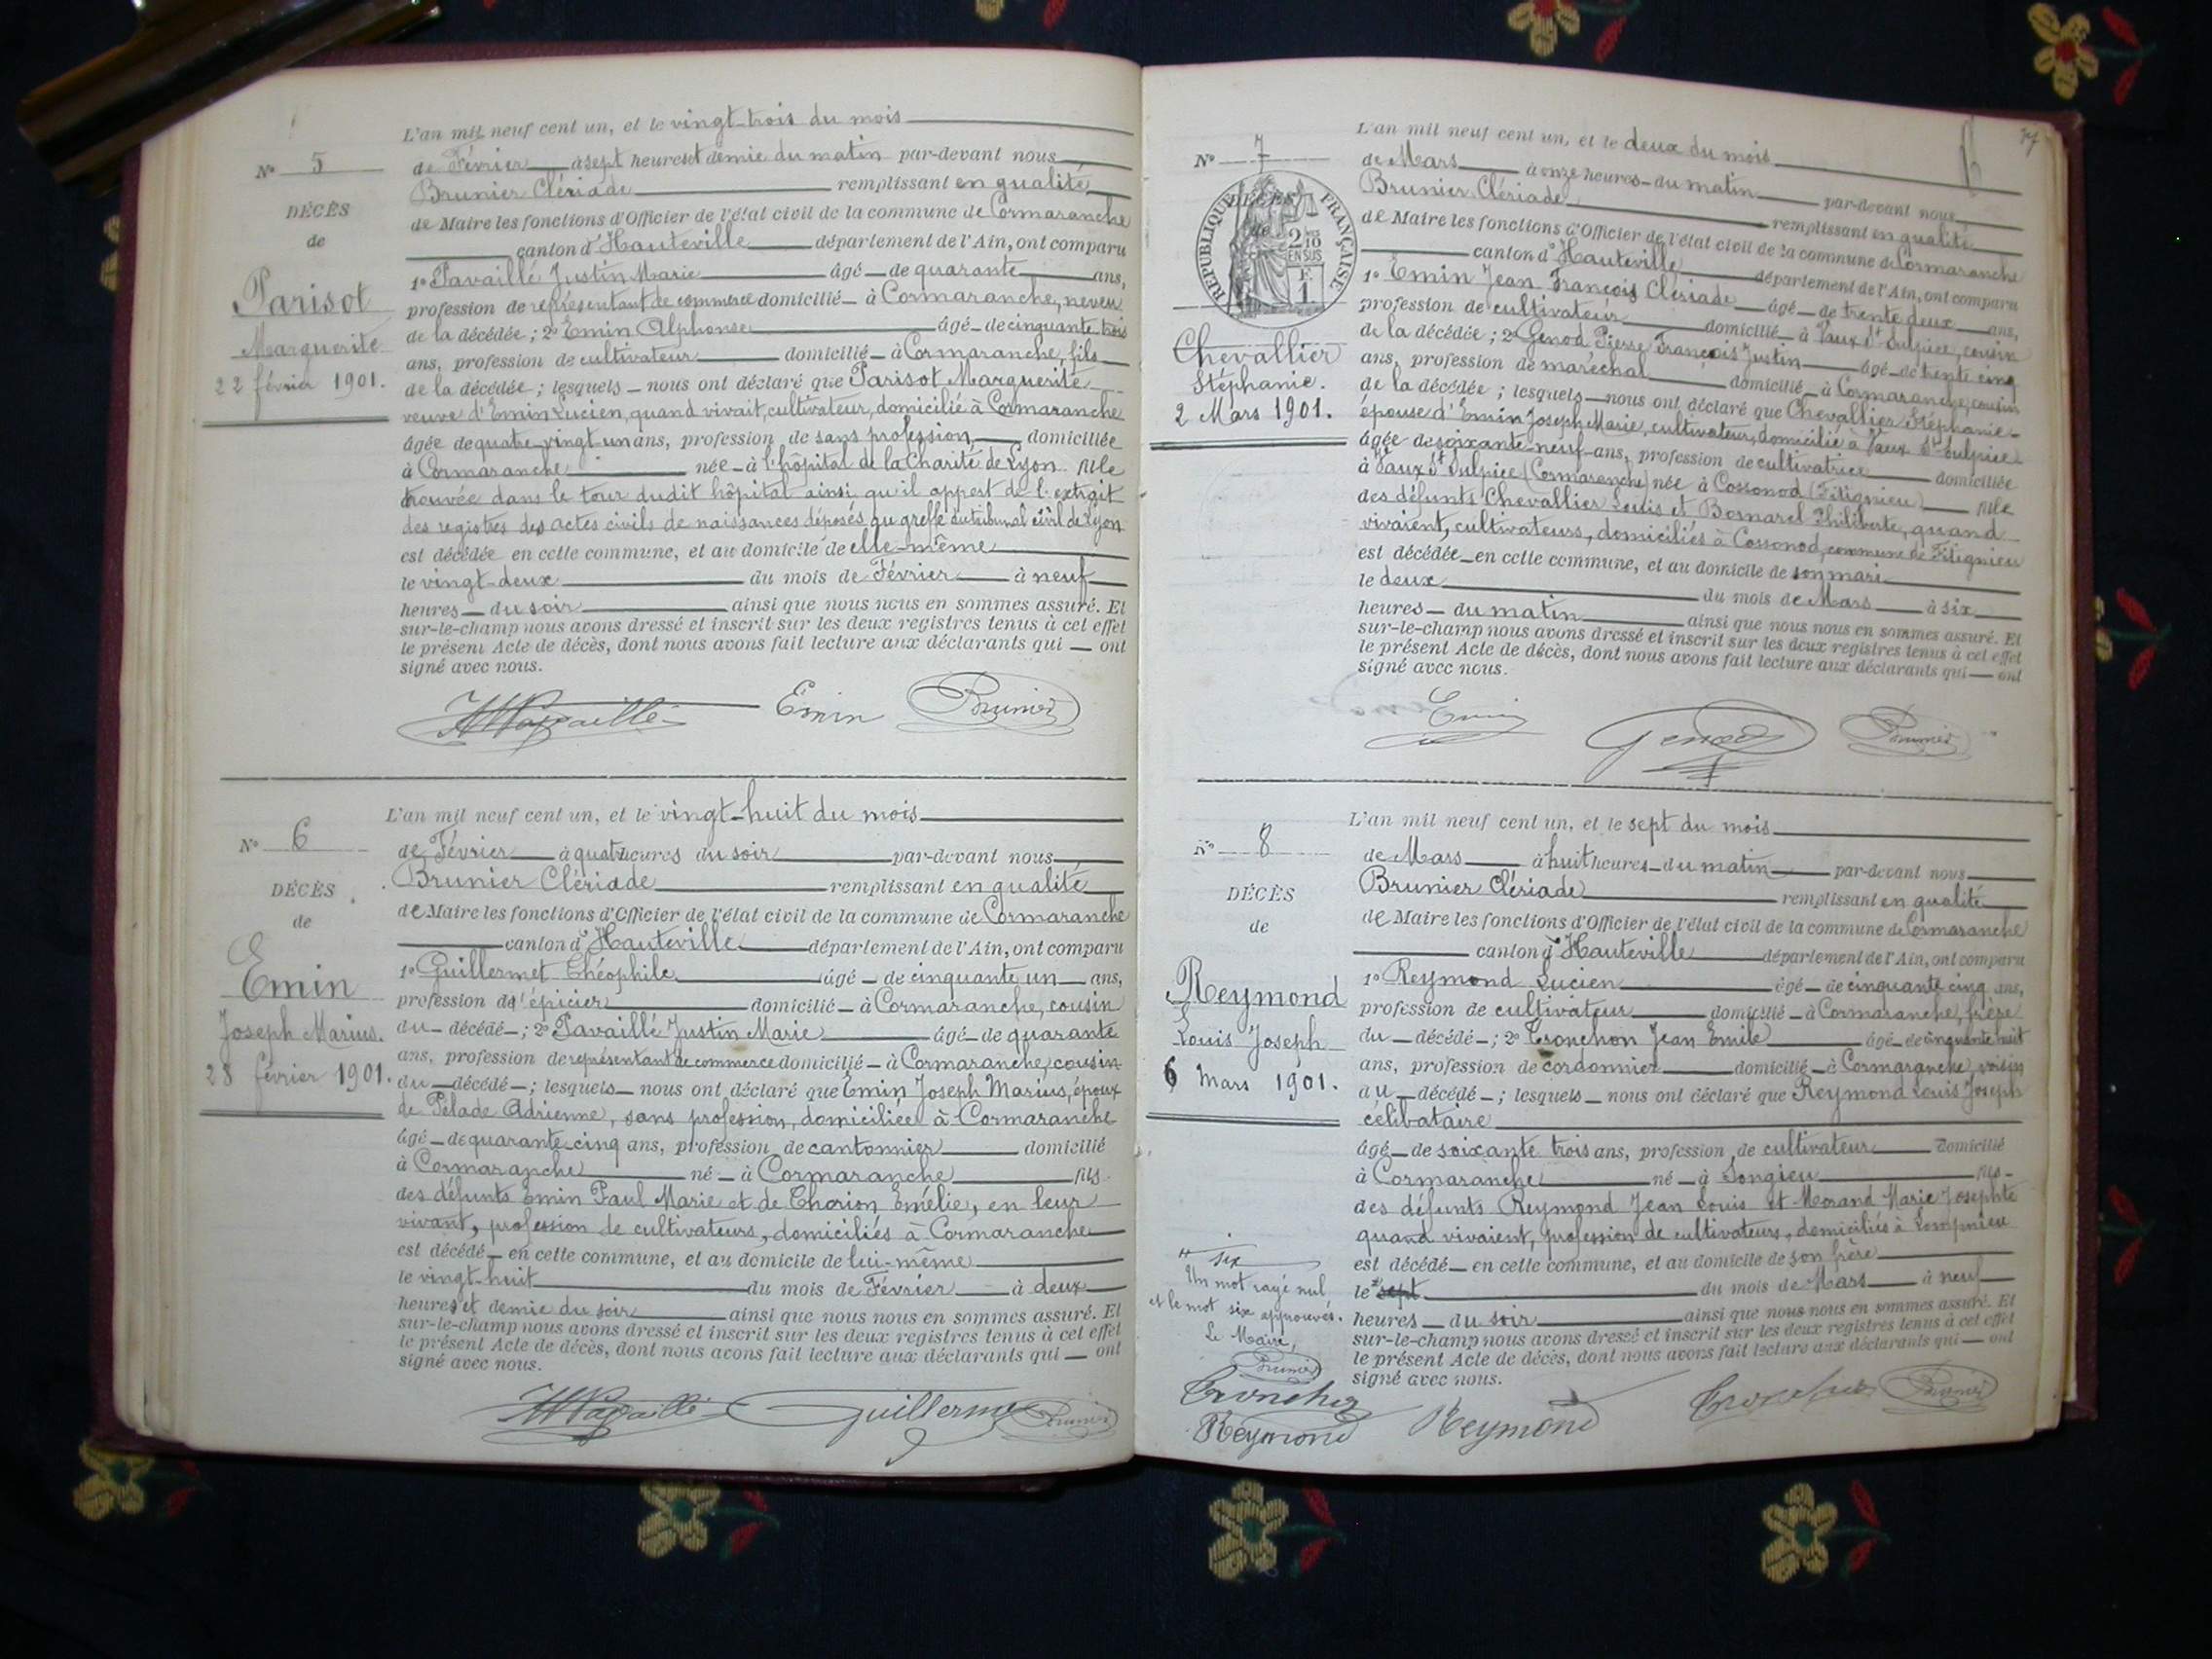 L'an mil neuf cent un, et le vingt-trois du mois
N° 5
de Février à sept heures et demie du matin par-devant nous
Brunier Clériade remplissant en qualité
DÉCÈS
de Maire les fonctions d'Officier de l'état civil de la commune de Cormaranche
de
canton d'Hauteville département de l'Ain, ont comparu
1° Pavaillé Justin Marie âgé de quarante ans,
Parisot
profession de représentant de commerce domicilié à Cormaranche, neveu
de la décédée ; 2° Emin Alphonse âgé de cinquante trois
Marguerite
ans, profession de cultivateur domicilié à Cormaranche, fils
22 février 1901.
de la décédée ; lesquels nous ont déclaré que Parisot Marguerite
veuve d'Emin Lucien, quand vivait, cultivateur, domicilié à Cormaranche
âgée de quatre-vingt-un ans, profession de sans profession, domiciliée
à Cormaranche née à l'hôpital de la Charité de Lyon fille
trouvée dans le tour dudit hôpital ainsi qu'il appert de l'extrait
des registres des actes civils de naissances déposés au greffe du tribunal civil de Lyon
est décédée en cette commune, et au domicile de elle-même
le vingt-deux du mois de Février à neuf
heures du soir ainsi que nous nous en sommes assuré. Et
sur-le-champ nous avons dressé et inscrit sur les deux registres tenus à cet effet
le présent Acte de décès, dont nous avons fait lecture aux déclarants qui ont
signé avec nous.
Emin Brunier
L'an mil neuf cent un, et le vingt-huit du mois
N° 6
de Février à quatre heures du soir par-devant nous
Brunier Clériade remplissant en qualité
DÉCÈS
de Maire les fonctions d'Officier de l'état civil de la commune de Cormaranche
de
canton d'Hauteville département de l'Ain, ont comparu
1° Guillermet Théophile âgé de cinquante un ans,
Emin
profession d'épicier domicilié à Cormaranche, cousin
Joseph Marius.
du décédé ; 2° Pavaillé Justin Marie âgé de quarante
ans, profession de représentant de commerce domicilié à Cormaranche, cousin
28 février 1901.
du décédé ; lesquels nous ont déclaré que Emin Joseph Marius, époux
de Pelade Adrienne, sans profession, domiciliée à Cormaranche
âgé de quarante-cinq ans, profession de cantonnier domicilié
à Cormaranche né à Cormaranche fils
des défunts Emin Paul Marie et de Chorion Emélie, en leur
vivant, profession de cultivateurs, domiciliés à Cormaranche
est décédé en cette commune, et au domicile de lui-même
le vingt-huit du mois de Février à deux
heures et demie du soir ainsi que nous nous en sommes assuré. Et
sur-le-champ nous avons dressé et inscrit sur les deux registres tenus à cet effet
le présent Acte de décès, dont nous avons fait lecture aux déclarants qui ont
signé avec nous.
Guillermet Brunier
17
L'an mil neuf cent un, et le deux du mois
N° 7
de Mars à onze heures du matin par-devant nous
Brunier Clériade remplissant en qualité
DÉCÈS
RÉPUBLIQUE FRANÇAISE
de
de Maire les fonctions d'Officier de l'état civil de la commune de Cormaranche
canton d'Hauteville département de l'Ain, ont comparu
1° Emin Jean François Clériade âgé de trente deux ans,
profession de cultivateur domicilié à Vaux St Sulpice, cousin
de la décédée ; 2° Genod Pierre François Justin âgé de trente cinq
Chevallier
ans, profession de maréchal domicilié à Cormaranche, cousin
Stéphanie.
de la décédée ; lesquels nous ont déclaré que Chevallier Stéphanie
2 Mars 1901.
épouse d'Emin Joseph Marie, cultivateur, domicilié à Vaux St Sulpice
âgée de soixante-neuf ans, profession de cultivatrice domiciliée
à Vaux St Sulpice (Cormaranche) née à Cossonod (Fitignieu) fille
des défunts Chevallier Louis et Bosnarel Philiberte, quand
vivaient, cultivateurs, domiciliés à Cossonod, commune de Fitignieu
est décédée en cette commune, et au domicile de son mari
le deux du mois de Mars à six
heures du matin ainsi que nous nous en sommes assuré. Et
sur-le-champ nous avons dressé et inscrit sur les deux registres tenus à cet effet
le présent Acte de décès, dont nous avons fait lecture aux déclarants qui ont
signé avec nous.
Emin Genod Brunier
L'an mil neuf cent un, et le sept du mois
N° 8
de Mars à huit heures du matin par-devant nous
Brunier Clériade remplissant en qualité
DÉCÈS
de Maire les fonctions d'Officier de l'état civil de la commune de Cormaranche
de
canton d'Hauteville département de l'Ain, ont comparu
1° Reymond Lucien âgé de cinquante cinq ans,
Reymond
profession de cultivateur domicilié à Cormaranche, frère
Louis Joseph
du décédé ; 2° Tronchon Jean Emile âgé de cinquante huit
ans, profession de cordonnier domicilié à Cormaranche, voisin
6 Mars 1901.
du décédé ; lesquels nous ont déclaré que Reymond Louis Joseph
célibataire
âgé de soixante trois ans, profession de cultivateur domicilié
à Cormaranche né à Songieu fils
des défunts Reymond Jean Louis et Morand Marie Josephte
quand vivaient, profession de cultivateurs, domiciliés à Lompnieu
est décédé en cette commune, et au domicile de son frère
six
le sept du mois de Mars à neuf
Un mot rayé nul
et le mot six approuvés.
heures du soir ainsi que nous nous en sommes assuré. Et
Le Maire,
sur-le-champ nous avons dressé et inscrit sur les deux registres tenus à cet effet
le présent Acte de décès, dont nous avons fait lecture aux déclarants qui ont
Brunier
signé avec nous.
Tronchon
Reymond Reymond Tronchon Brunier